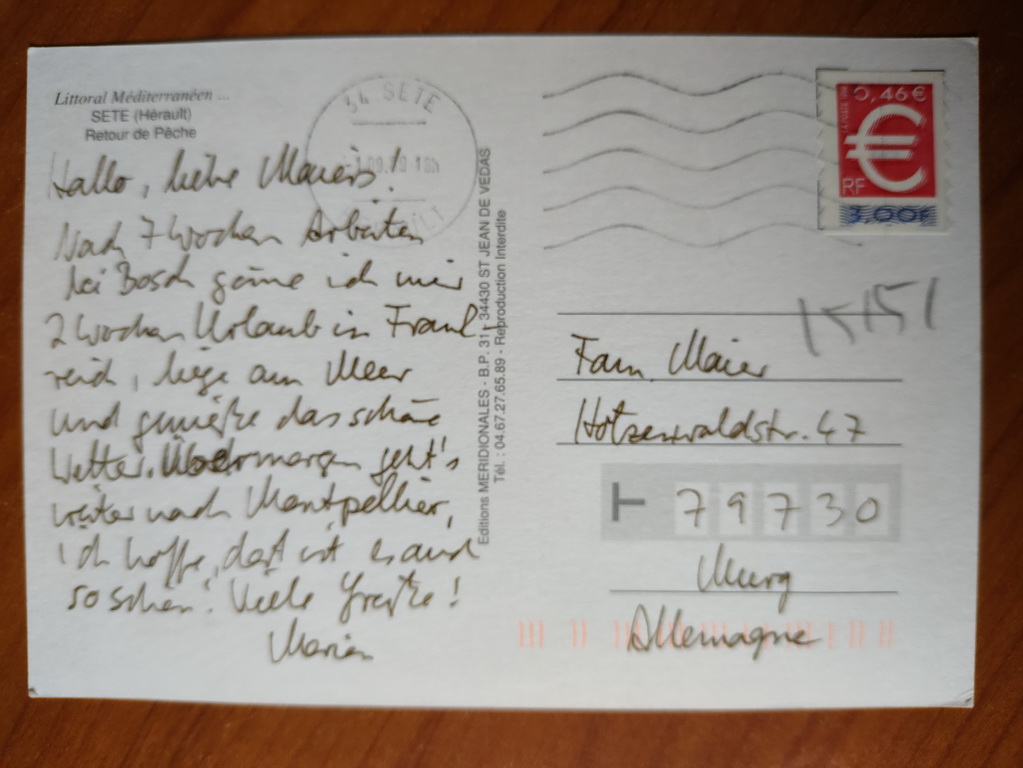 Littoral Méditerranéen ...
SETE (Hérault)
Retour de Pêche
Hallo, liebe Maiers!
Nach 7 Wochen Arbeiten
bei Bosch gönne ich mir
2 Wochen Urlaub in Frank-
reich, liege am Meer
und genieße das schöne
Wetter. Übermorgen geht's
weiter nach Montpellier,
ich hoffe, dort ist es auch
so schön! Viele Grüße!
Marion
34 SETE
Editions MERIDIONALES - B.P. 31 - 34430 ST JEAN DE VEDAS
Tél. : 04.67.27.65.89 - Reproduction Interdite
0,46 €
€
RF
3,00F
15151
Fam. Maier
Hotzenwaldstr. 47
T 79730
Murg
Allemagne